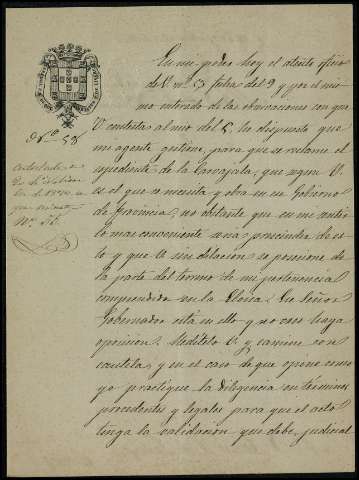 En mi poder hoy el atento oficio
de V. nº 5 fecha del 9 y por el mis-
mo enterado de las observaciones con que
V contesta al mio del 5, he dispuesto que
mi agente gestione, para que se reclame el
espediente de la que segun V.
es el que se necesita y obra en ese Gobierno
de Provincia, no obstante que en mi sentir
lo mas conveniente seria prescindir de es-
to y que V sin dilacion se posecione de
la parte del terreno de mi pertenencia
comprendida en la Dicho Señor
Gobernador está en ello y no creo haya
oposicion. Meditelo V. y camine con
cautela, y en el caso de que opine como
yo practique la diligencia en terminos
procedentes y legales para que el acto
tenga la validacion que debe, judicial
Nº 58
Contestado a
en
Nº